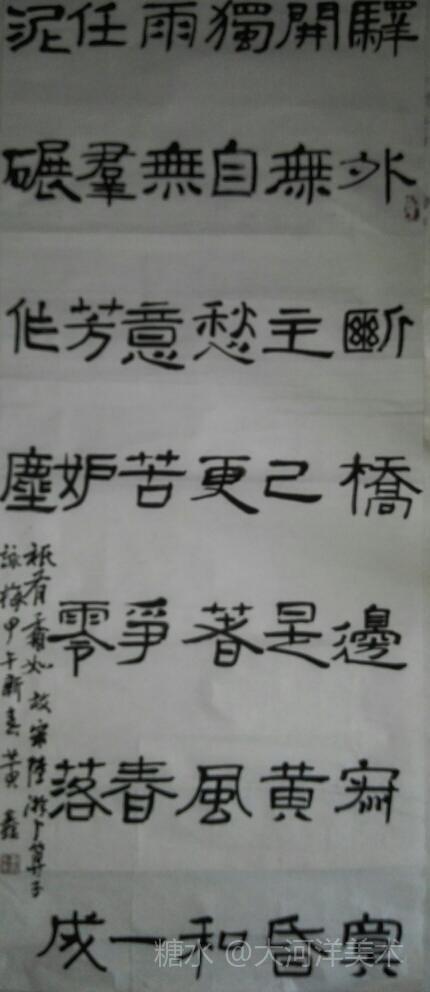 驛外斷橋邊寂寞
開無主已是黃昏
獨自愁更著風和
雨無意苦爭春一
任羣芳妒零落成
泥碾作塵
祇有香如故 宋陸游卜算子
詠梅甲午新春黃鑫
糖水 @大河洋美术